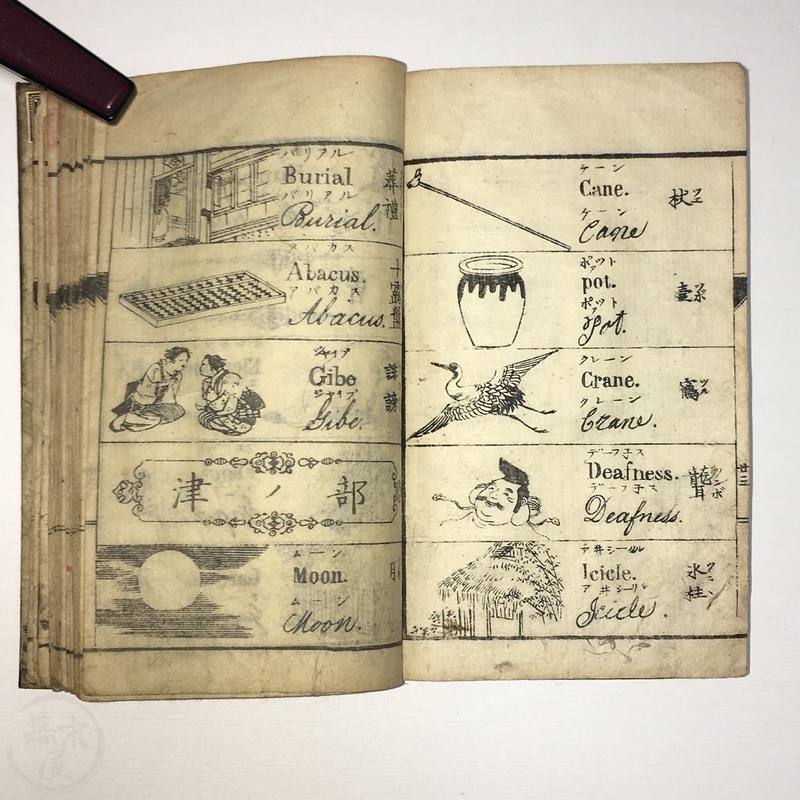 バリアル
Burial
バリアル
Burial.
葬禮
アバカス
Abacus.
アバカス
Abacus.
十露盤
ジャイブ
Gibe
ジャイブ
Gibe.
誹謗
津ノ部
ムーン
Moon.
ムーン
Moon.
月
ケーン
Cane.
ケーン
Cane
杖 ツエ
ポット
pot.
ポット
Pot.
壺 ツボ
クレーン
Crane.
クレーン
Crane.
鶴 ツル
デーフ子ス
Deafness.
デーフ子ス
Deafness.
聾 ツンボ
ア井シール
Icicle.
ア井シーリ
Icicle.
氷柱
廿三